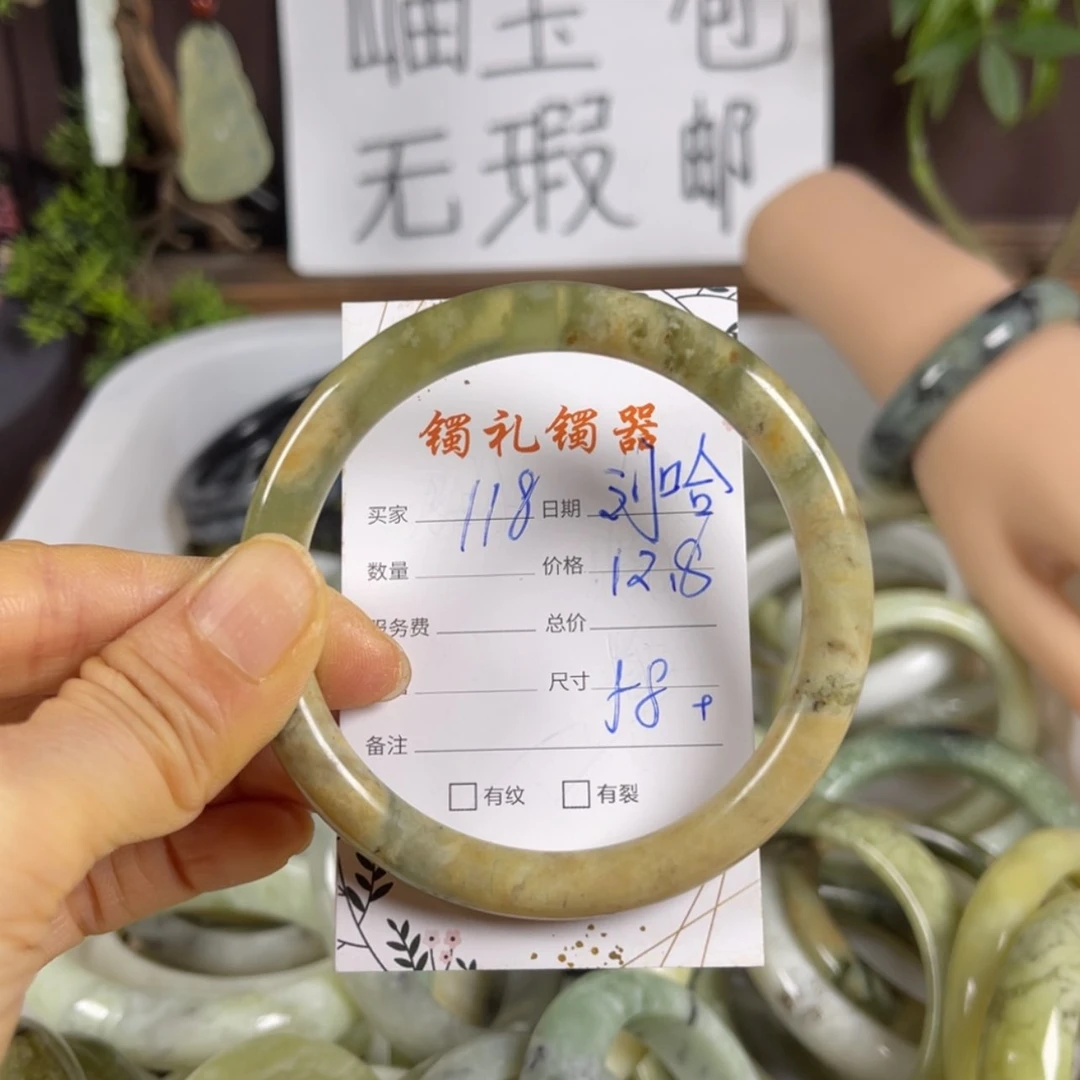 岫玉包
无瑕邮
镯礼镯器
买家 118 日期 刘哈
数量 价格 12.8
服务费 总价
尺寸 58+
备注
有纹 有裂